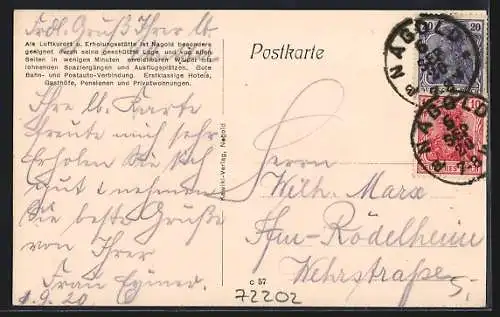 Frdl. Gruß Ihrer lb.
Als Luftkurort u. Erholungsstätte ist Nagold besonders
geeignet durch seine geschützte Lage und aus allen
Seiten in wenigen Minuten erreichbaren Wälder mit
lohnenden Spaziergängen und Ausflugsplätzen. Gute
Bahn- und Postauto-Verbindung. Erstklassige Hotels,
Gasthöfe, Pensionen und Privatwohnungen.
Ihre lb. Karte
freute mich sehr
Erholen Sie sich
gut & nehmen
Sie beste Grüße
von Ihrer
Frau
1.9.20
Verlag, Nagold
Postkarte
Herrn
Wilh. Marx
Ffm-Rödelheim
Wehrstraße 5,
c 57
72202
NAGOLD
20
NAGOLD